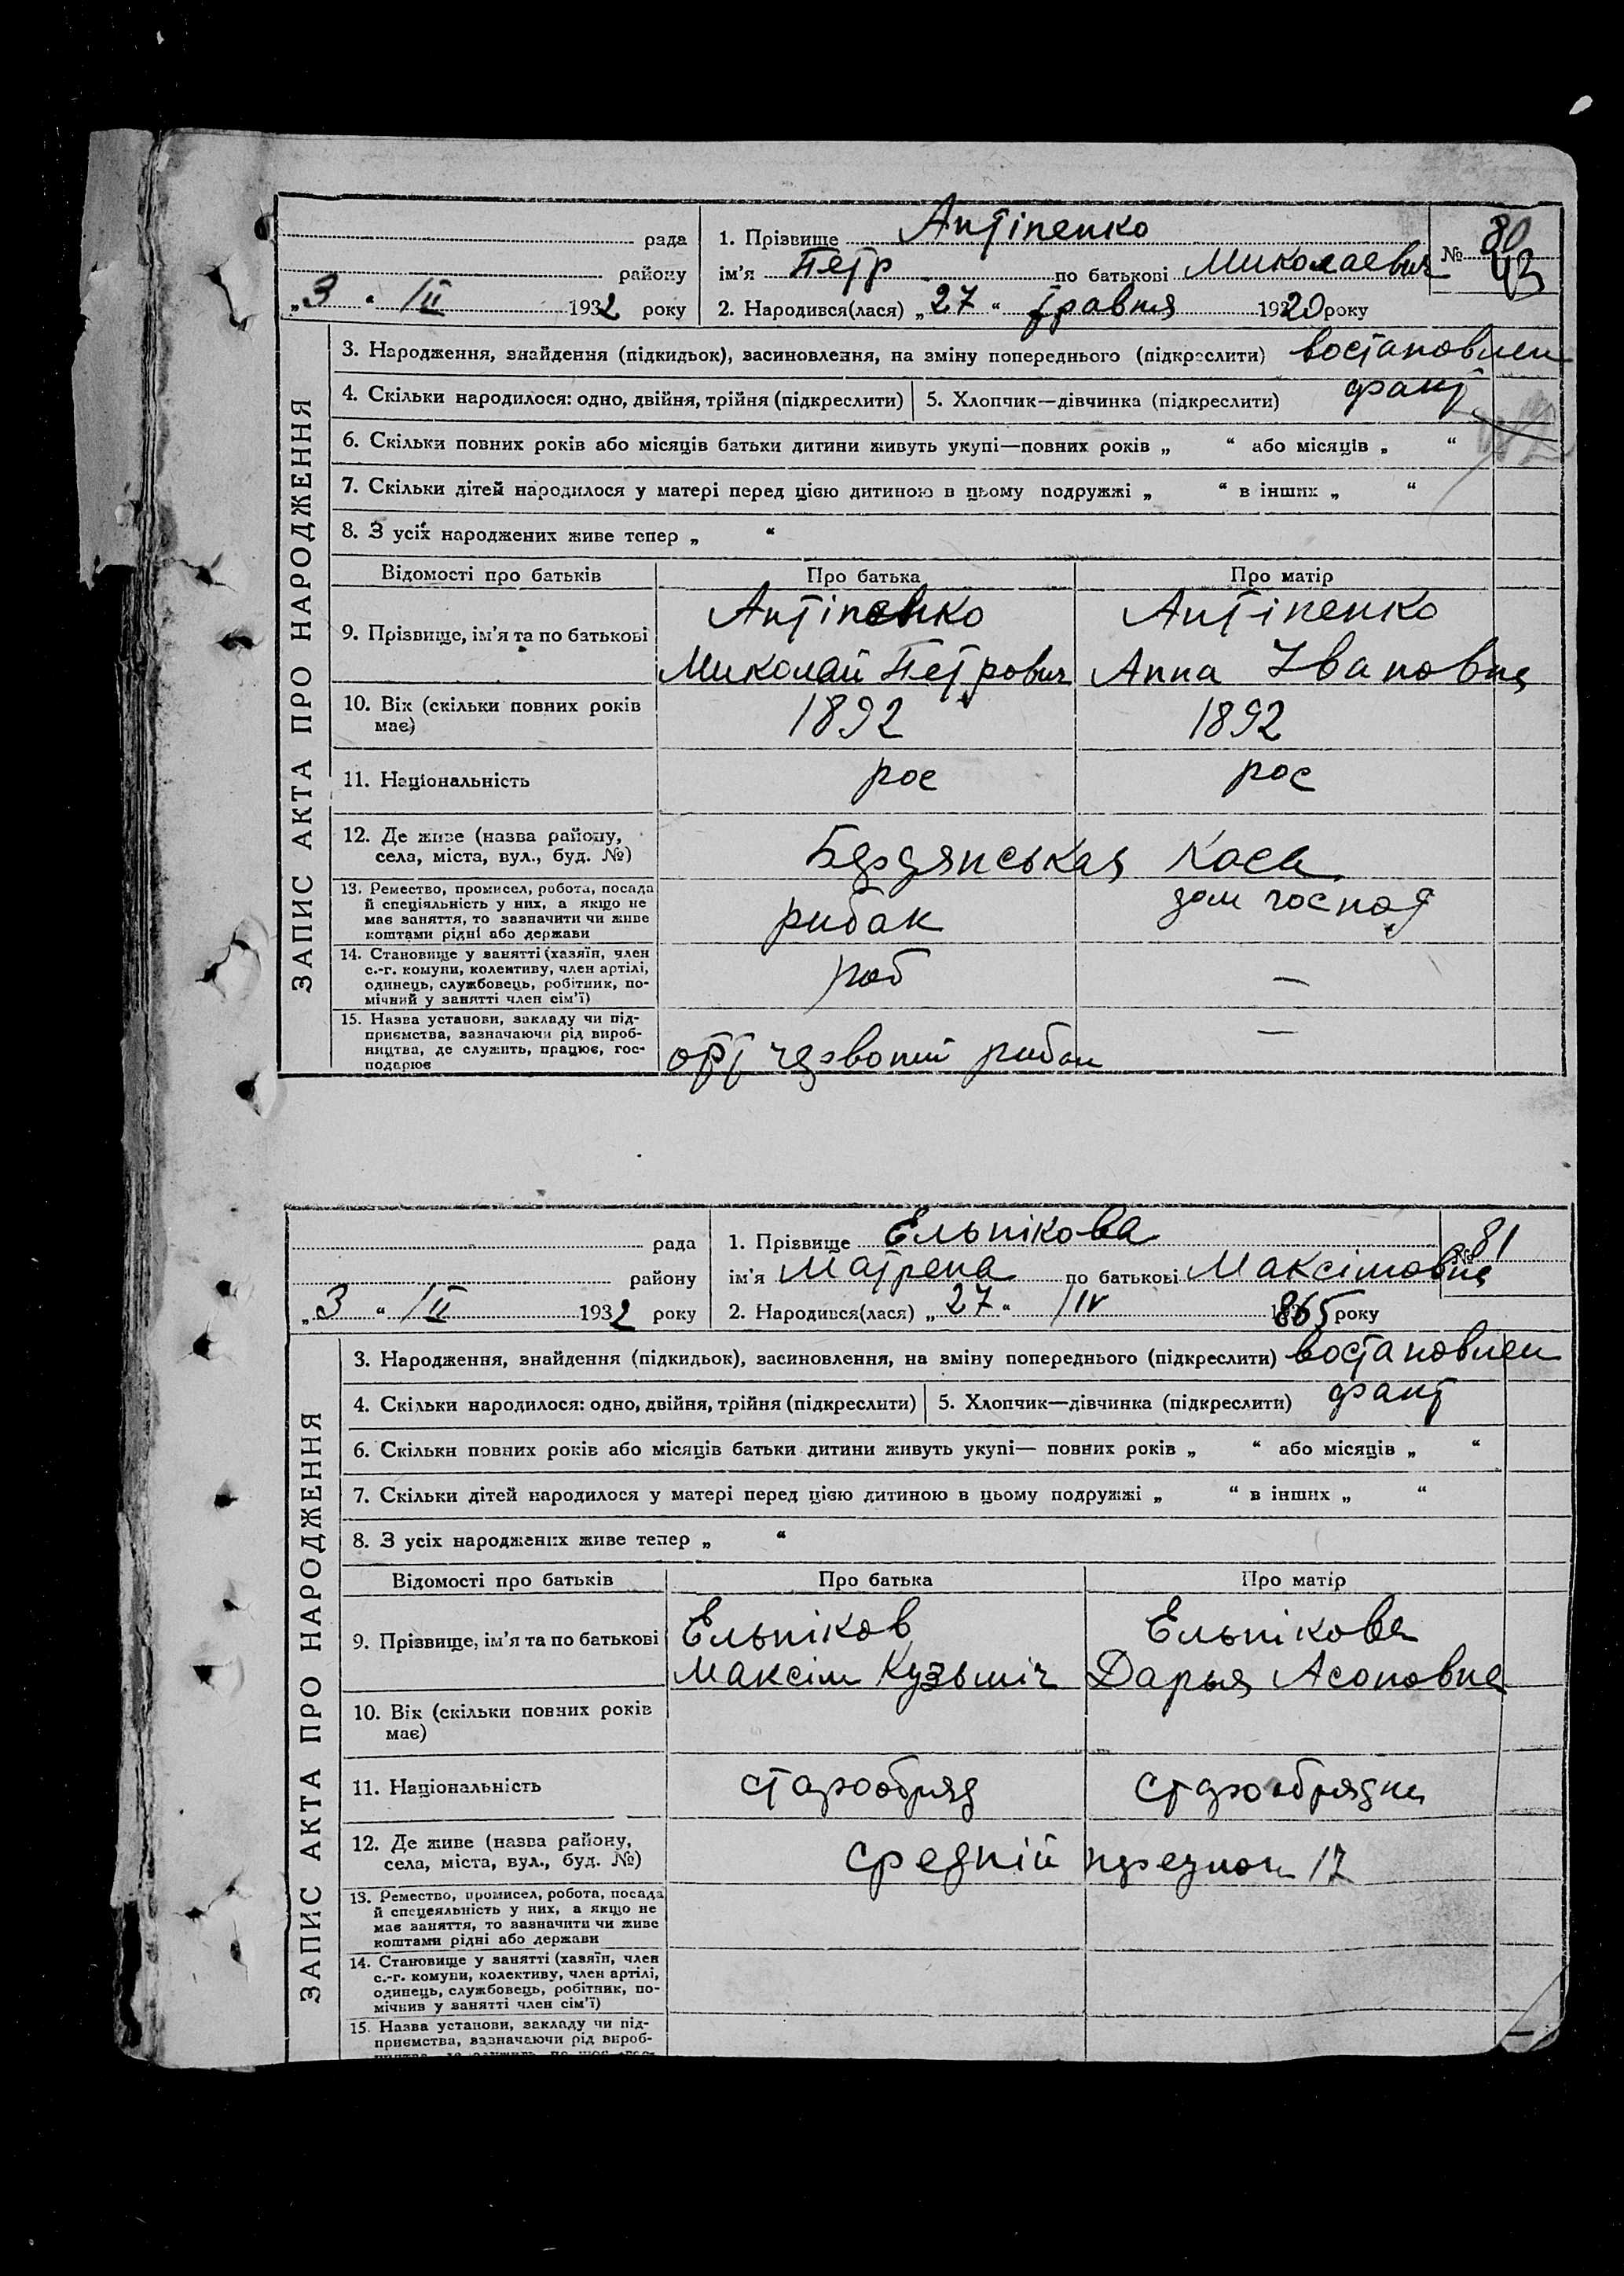 рада
району
„3 “ III 1932 року
1. Прізвище Антіпенко
ім’я Петр по батькові Миколаевич
2. Народився(лася) „27“ травня 1920 року
№ 80
ЗАПИС АКТА ПРО НАРОДЖЕННЯ
3. Народження, знайдення (підкидьок), засиновлення, на зміну попереднього (підкреслити) востановлен
4. Скільки народилося: одно, двійня, трійня (підкреслити) 5. Хлопчик—дівчинка (підкреслити) факт
6. Скільки повних років або місяців батьки дитини живуть укупі—повних років „ “ або місяців „ “
7. Скільки дітей народилося у матері перед цією дитиною в цьому подружжі „ “ в інших „ “
8. З усіх народжених живе тепер „ “
Відомості про батьків Про батька Про матір
9. Прізвище, ім’я та по батькові
Антіпенко Антіпенко
Миколай Петрович Анна Івановна
10. Вік (скільки повних років 1892 1892
має)
11. Національність рос рос
12. Де живе (назва району,
села, міста, вул., буд. №) Бердянськая Коса
13. Ремество, промисел, робота, посада
й спеціяльність у них, а якщо не
має заняття, то зазначити чи живе
коштами рідні або держави
рибак дом господ
14. Становище у занятті (хазяїн, член
с.-г. комуни, колективу, член артілі,
одинець, службовець, робітник, по-
мічний у занятті член сім’ї)
роб —
15. Назва установи, закладу чи під-
приємства, зазначаючи рід вироб-
ництва, де служить, працює, гос-
подарює
арт червоний рибак —
рада
району
„3 “ III 1932 року
1. Прізвище Ельнікова
ім’я Матрена по батькові Максімовна
2. Народився(лася) „27“ 865 року
№ 81
ЗАПИС АКТА ПРО НАРОДЖЕННЯ
3. Народження, знайдення (підкидьок), засиновлення, на зміну попереднього (підкреслити) востановлен
4. Скільки народилося: одно, двійня, трійня (підкреслити) 5. Хлопчик—дівчинка (підкреслити) факт
6. Скільки повних років або місяців батьки дитини живуть укупі— повних років „ “ або місяців „ “
7. Скільки дітей народилося у матері перед цією дитиною в цьому подружжі „ “ в інших „ “
8. З усіх народжених живе тепер „ “
Відомості про батьків Про батька Про матір
9. Прізвище, ім’я та по батькові
Ельніков Ельнікова
Максім Кузьміч Дарья Асоновна
10. Вік (скільки повних років
має)
11. Національність старообряд старообрядка
12. Де живе (назва району,
села, міста, вул., буд. №) средній 17
13. Ремество, промисел, робота, посада
й спецеяльність у них, а якщо не
має заняття, то зазначити чи живе
коштами рідні або держави
14. Становище у занятті (хазяїн, член
с.-г. комуни, колективу, член артілі,
одинець, службовець, робітник, по-
мічнив у занятті член сім’ї)
15. Назва установи, закладу чи під-
приємства, зазначаючи рід вироб-